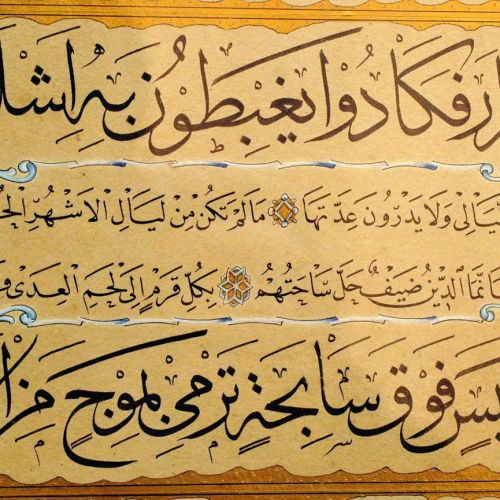 ار فَكَادُوا يَغْبِطُونَ بِهِ اَشْلَا
يَالِي وَلَا يَدْرُونَ عِدَّتَهَا مَا لَمْ تَكُنْ مِنْ لَيَالِ الْاَشْهُرِ الْحُ
اَنَّمَا الدِّينُ ضَيْفٌ حَلَّ سَاحَتَهُمْ بِكُلِّ قَرْمٍ اِلَى لَحْمِ الْعِدَى قَ
يسٍ فَوْقَ سَابِحَةٍ تَرْمِي بِمَوْجٍ مِنَ ال